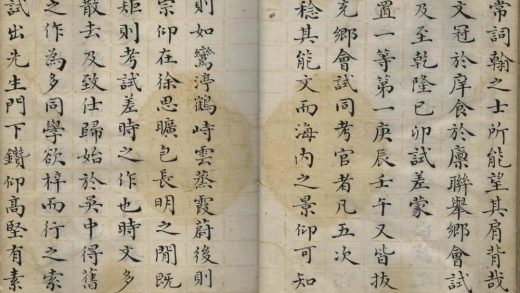 常詞翰之士所能望其肩背哉
文冠於庠食於廩聯舉鄉會試
及至乾隆已卯試差蒙
置一等第一庚辰壬午又皆拔
充鄉會試同考官者凡五次
稔其能文而海内之景仰可知
則如鸞渟鶴峙雲蒸霞蔚後則
宗仰在徐思曠包長明之閒既
矩則考試差時之作也時文多
散去及致仕歸始於吳中得舊
之作為多同學欲梓而行之索
試出先生門下鑽仰高堅有素